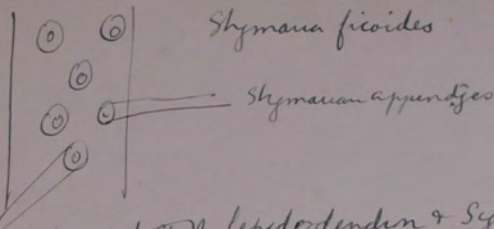 Stigmaria ficoides
Stigmarian appendges
lepidodendron & Sy